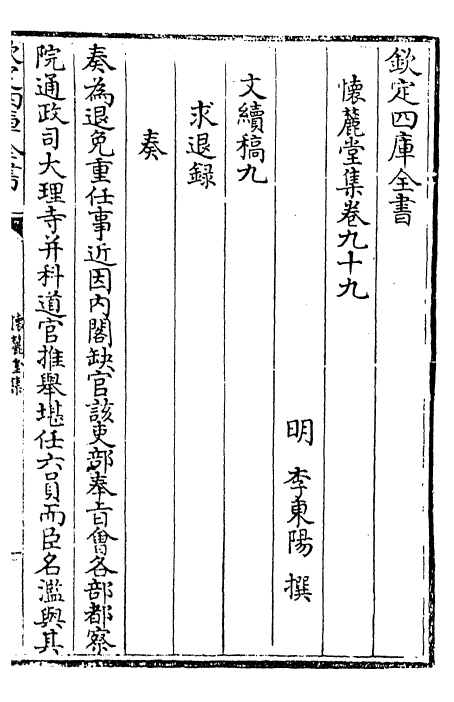 欽定四庫全書
懷麓堂集卷九十九
明 李東陽 撰
文續稿九
求退錄
奏
奏為退免重任事近因内閣缺官該吏部奉㫖㑹各部都察
院通政司大理寺并科道官推舉堪任六員而臣名濫與其
欽定四庫全書
懷麓堂集
一